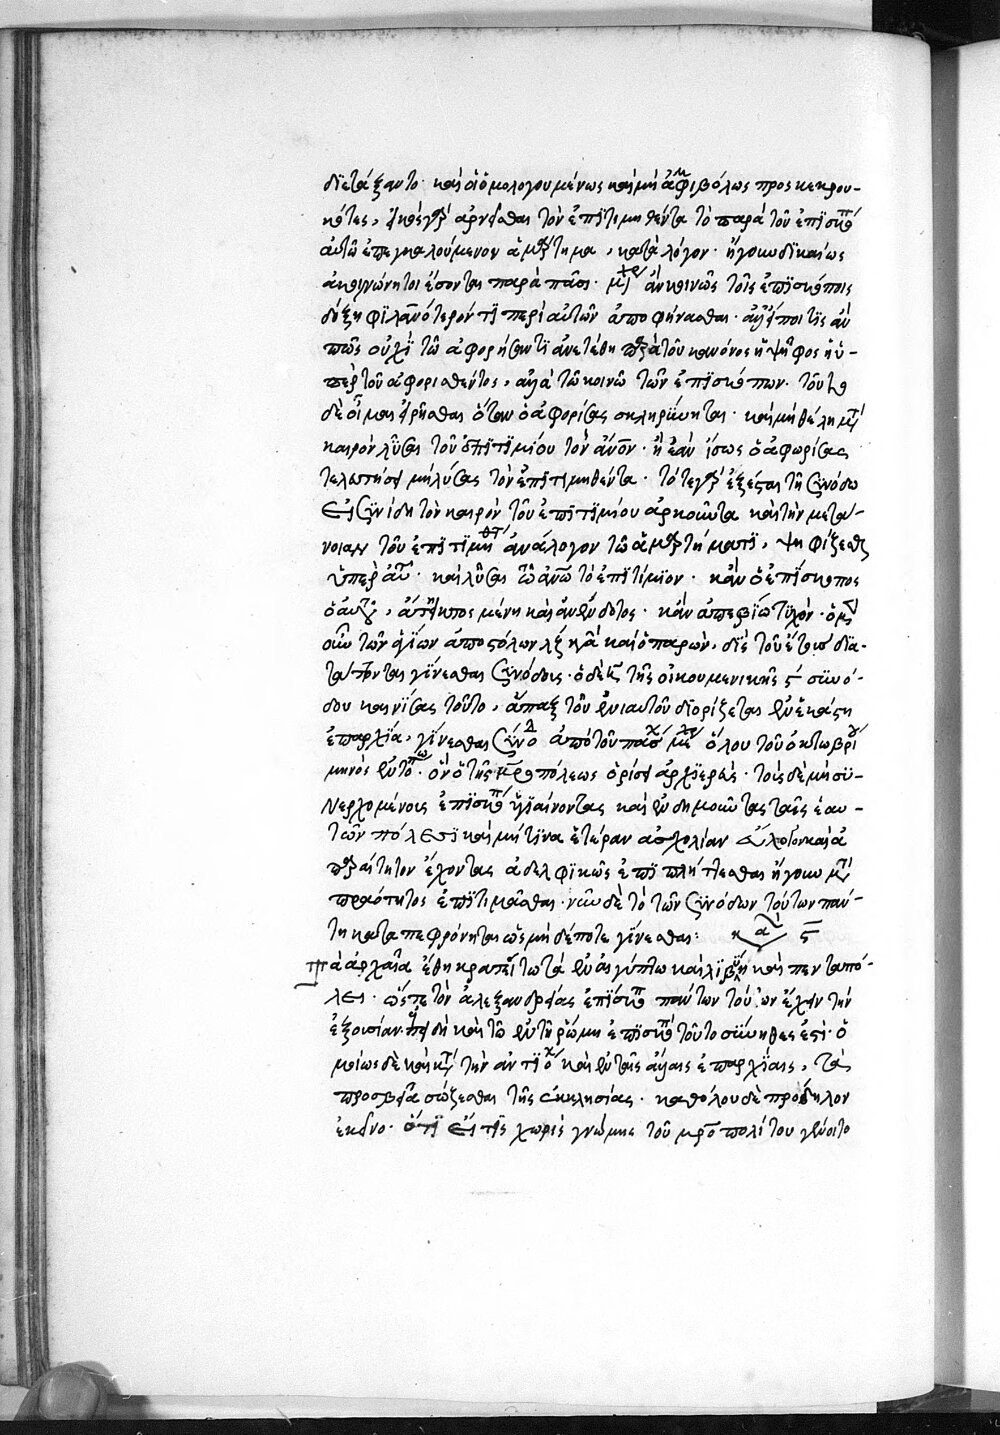 διετάξαντο· καὶ οἱ ὁμολογουμένως καὶ μὴ ἀμφιβόλως προσκεκρου-
κότες, τὸν ἐπιτιμηθέντα τὸ παρὰ τοῦ ἐπισκόπου
αὐτῶ ἁμάρτημα, κατὰ λόγον· ἤγουν δικαίως
ἀκοινώνητοι ἔσονται παρὰ πᾶσι· μέχρις ἂν κοινῶς τοῖς ἐπισκόποις
δόξῃ φιλανθρωπότερόν τι περὶ αὐτῶν ἀποφήνασθαι·
πῶς οὐχὶ τῶ ἀφορήσαντι ἀνετέθη παρὰ τοῦ κανόνος ἡ ψῆφος ἡ ὑ-
πὲρ τοῦ ἀφορισθέντος, ἀλλὰ τῶ κοινῶ τῶν ἐπισκόπων· τοῦτο
δὲ οἶμαι εἰρῆσθαι ὅταν ὁ ἀφορίσας σκληρύνηται· καὶ μὴ θέλη μετὰ
καιρὸν λῦσαι τοῦ ἐπιτιμίου τὸν ἄνθρωπον· ἢ ἐὰν ἴσως ὁ ἀφωρίσας
τελευτήσῃ μὴ λύσας τὸν ἐπιτιμηθέντα· τότε γὰρ ἔξεσται τῆ συνόδω
εἰ συνίδη τὸν καιρὸν τοῦ ἐπιτιμίου ἀρκοῦντα καὶ τὴν μετά-
νοιαν τοῦ ἐπιτιμηθέντος ἀνάλογον τῶ ἁμαρτήματι, ψηφίζεσθαι
ὑπὲρ αὐτοῦ· καὶ λῦσαι τὸ ἐπιτίμιον· κἂν ὁ ἐπίσκοπος
ὁ αὐτοῦ, μένη καὶ ἀνένδοτος· κἂν ἀπεβίω τυχόν· ὁ μὲν
οὖν τῶν ἁγίων ἀποστόλων λζ καὶ ὁ παρὼν, δὶς τοῦ ἔτους δια-
τάττονται γίνεσθαι συνόδους· ὁ δὲ η τῆς οἰκουμενικῆς ς συνό-
δου καινίσας τοῦτο, ἅπαξ τοῦ ἐνιαυτοῦ διορίζεται ἐν ἑκάστη
ἐπαρχία, γίνεσθαι σύνοδον ἀπὸ τοῦ πάσχα μέχρι ὅλου τοῦ ὀκτωβρίου
μηνὸς ἐν τόπω· ὃν ὁ τῆς μητροπόλεως ὁρίσῃ ἀρχιερεύς· τοῖς δὲ μὴ συ-
νερχομένοις ἐπισκόποις ὑγιαίνοντας καὶ ἐνδημοῦντας ταῖς ἑαυ-
τῶν πόλεσι καὶ μή τινα ἑτέραν ἀσχολίαν εὔλογον καὶ ἀ
παραίτητον ἔχοντας ἀδελφικῶς ἐπιπλήττεσθαι ἤγουν μετὰ
πραότητος ἐπιτιμᾶσθαι· νῦν δὲ τὸ τῶν συνόδων τούτων παν-
τη καταπεφρόνηται ὡς μηδέποτε γίνεσθαι: κα ς
Τὰ ἀρχαῖα ἔθη κρατείτω τὰ ἐν αἰγύπτω καὶ λιβύη καὶ πενταπό-
λει· ὥστε τὸν ἀλεξανδρείας ἐπίσκοπον πάντων τούτων ἔχειν τὴν
ἐξουσίαν· ἐπειδὴ καὶ τῶ ἐν τῆ ῥώμη ἐπισκόπω τοῦτο σύνηθές ἐστι· ὁ
μοίως δὲ καὶ κατὰ τὴν ἀντιόχειαν καὶ ἐν ταῖς ἄλλαις ἐπαρχίαις, τὰ
πρεσβεῖα σώζεσθαι τῆς ἐκκλησίας· καθόλου δὲ πρόδηλον
ἐκεῖνο· ὅτι εἴ τις χωρὶς γνώμης τοῦ μητροπολίτου γένοιτο